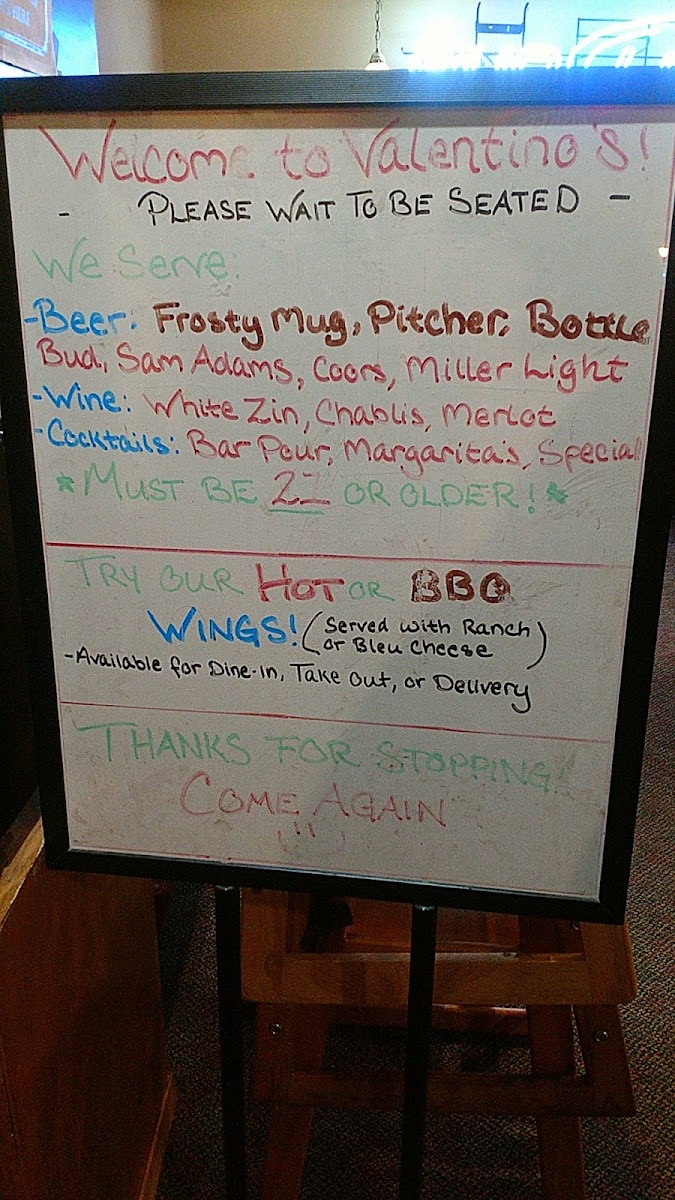 Welcome to Valentino's!
- PLEASE WAIT TO BE SEATED -
We Serve:
-Beer: Frosty Mug, Pitcher, Bottle
Bud, Sam Adams, Coors, Miller Light
-Wine: White Zin, Chablis, Merlot
-Cocktails: Bar Pour, Margarita's, Special
*MUST BE 21 OR OLDER!*
TRY OUR HOT OR BBQ
WINGS! (Served with Ranch
or Bleu Cheese)
-Available for Dine-In, Take Out, or Delivery
THANKS FOR STOPPING!
COME AGAIN